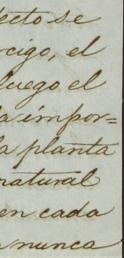 ecto se
cigo, el
luego el
la impor=
la planta
natural
en cada
a nunca